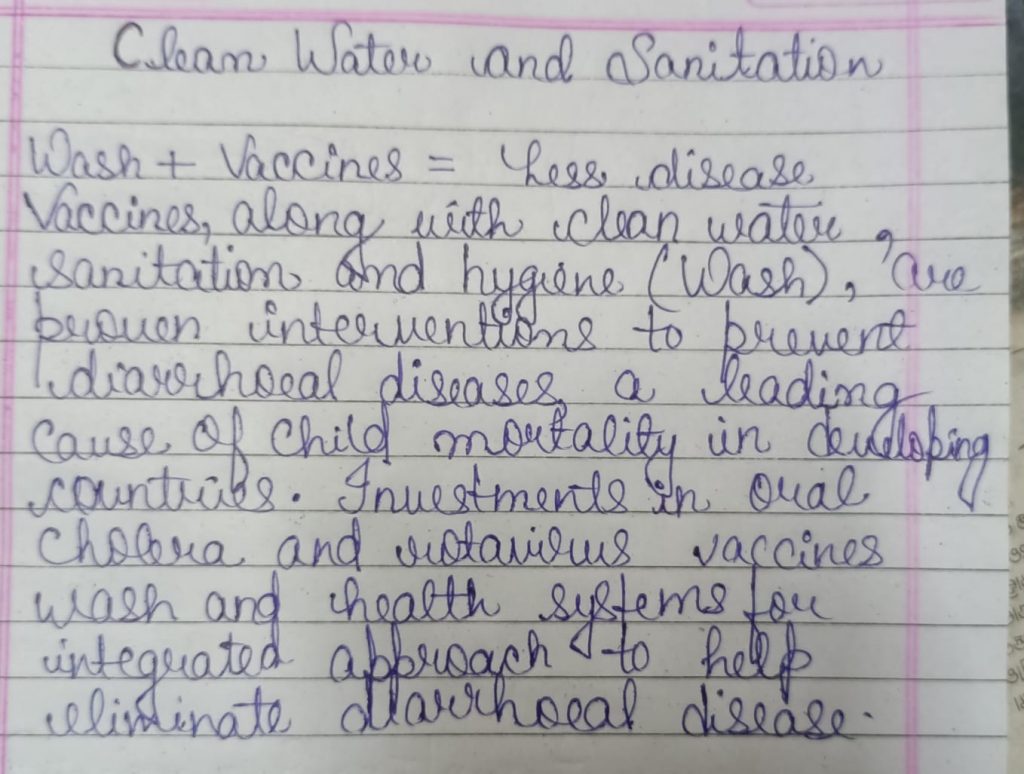 Clean Water and Sanitation
Wash + Vaccines = Less disease
Vaccines, along with clean water,
sanitation and hygiene (Wash), are
proven interventions to prevent
diarrhoeal diseases a leading
cause of child mortality in developing
countries. Investments in oral
cholera and rotavirus vaccines
wash and health systems for
integrated approach to help
eliminate diarrhoeal disease.